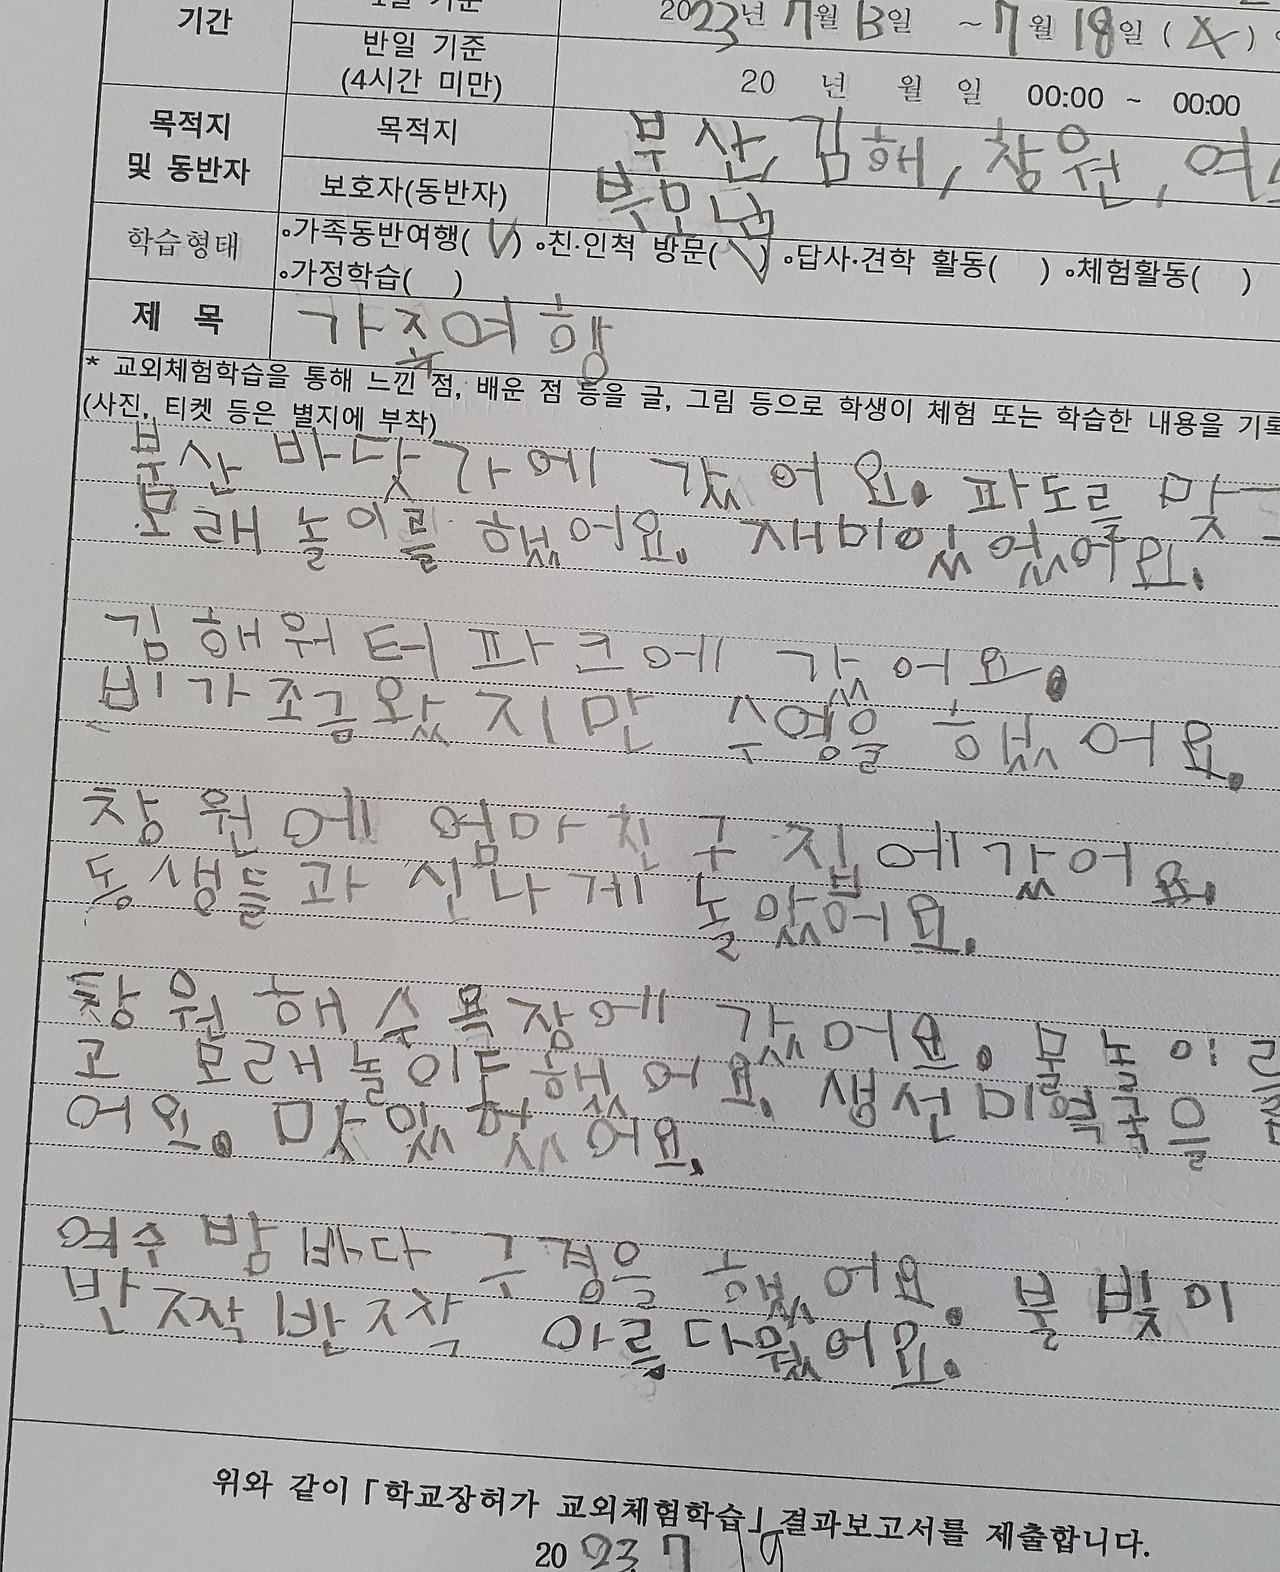 기간
2023년 7월 13일 ~ 7월 18일 (4)
반일 기준
(4시간 미만)
20 년 월 일 00:00 ~ 00:00
목적지
및 동반자
목적지
부산, 김해, 창원, 여
보호자(동반자)
부모님
학습형태
∘가족동반여행( V) ∘친·인척 방문( V) ∘답사·견학 활동( ) ∘체험활동( )
∘가정학습( )
제 목
가족여행
* 교외체험학습을 통해 느낀 점, 배운 점 등을 글, 그림 등으로 학생이 체험 또는 학습한 내용을 기록
(사진, 티켓 등은 별지에 부착)
부산 바닷가에 갔어요. 파도를 맞
모래 놀이를 했어요. 재미있었어요.
김해워터파크에 갔어요.
비가조금왔지만 수영을 했어요.
창원에 엄마친구집에갔어요.
동생들과 신나게 놀았어요.
창원해수욕장에 갔어요. 물놀이
고 모래놀이도했어요. 생선미역국을
어요. 맛있었어요.
여수밤바다 구경을 했어요. 불빛이
반짝반짝 아름다웠어요.
위와 같이 「학교장허가 교외체험학습」 결과보고서를 제출합니다.
2023 7 19